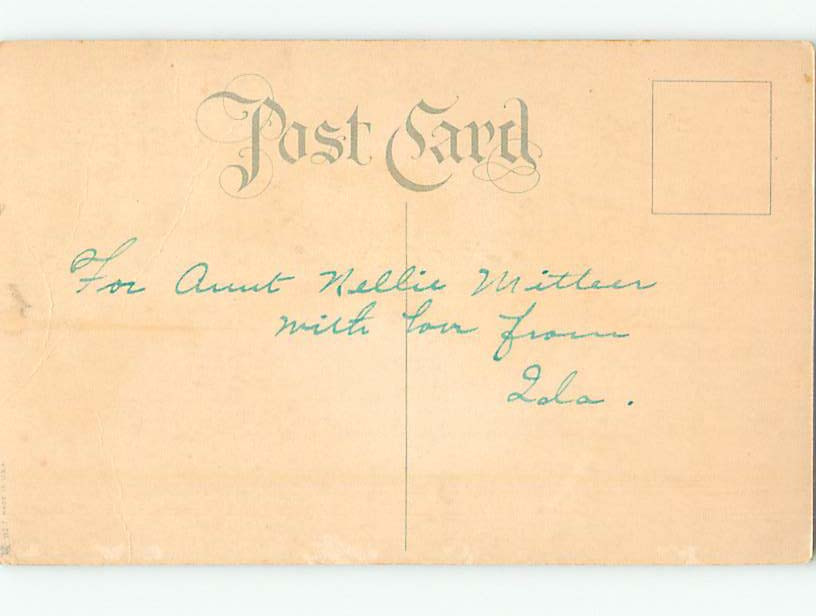 Post Card
For Aunt Nellie Mitteer
with love from
Ida.